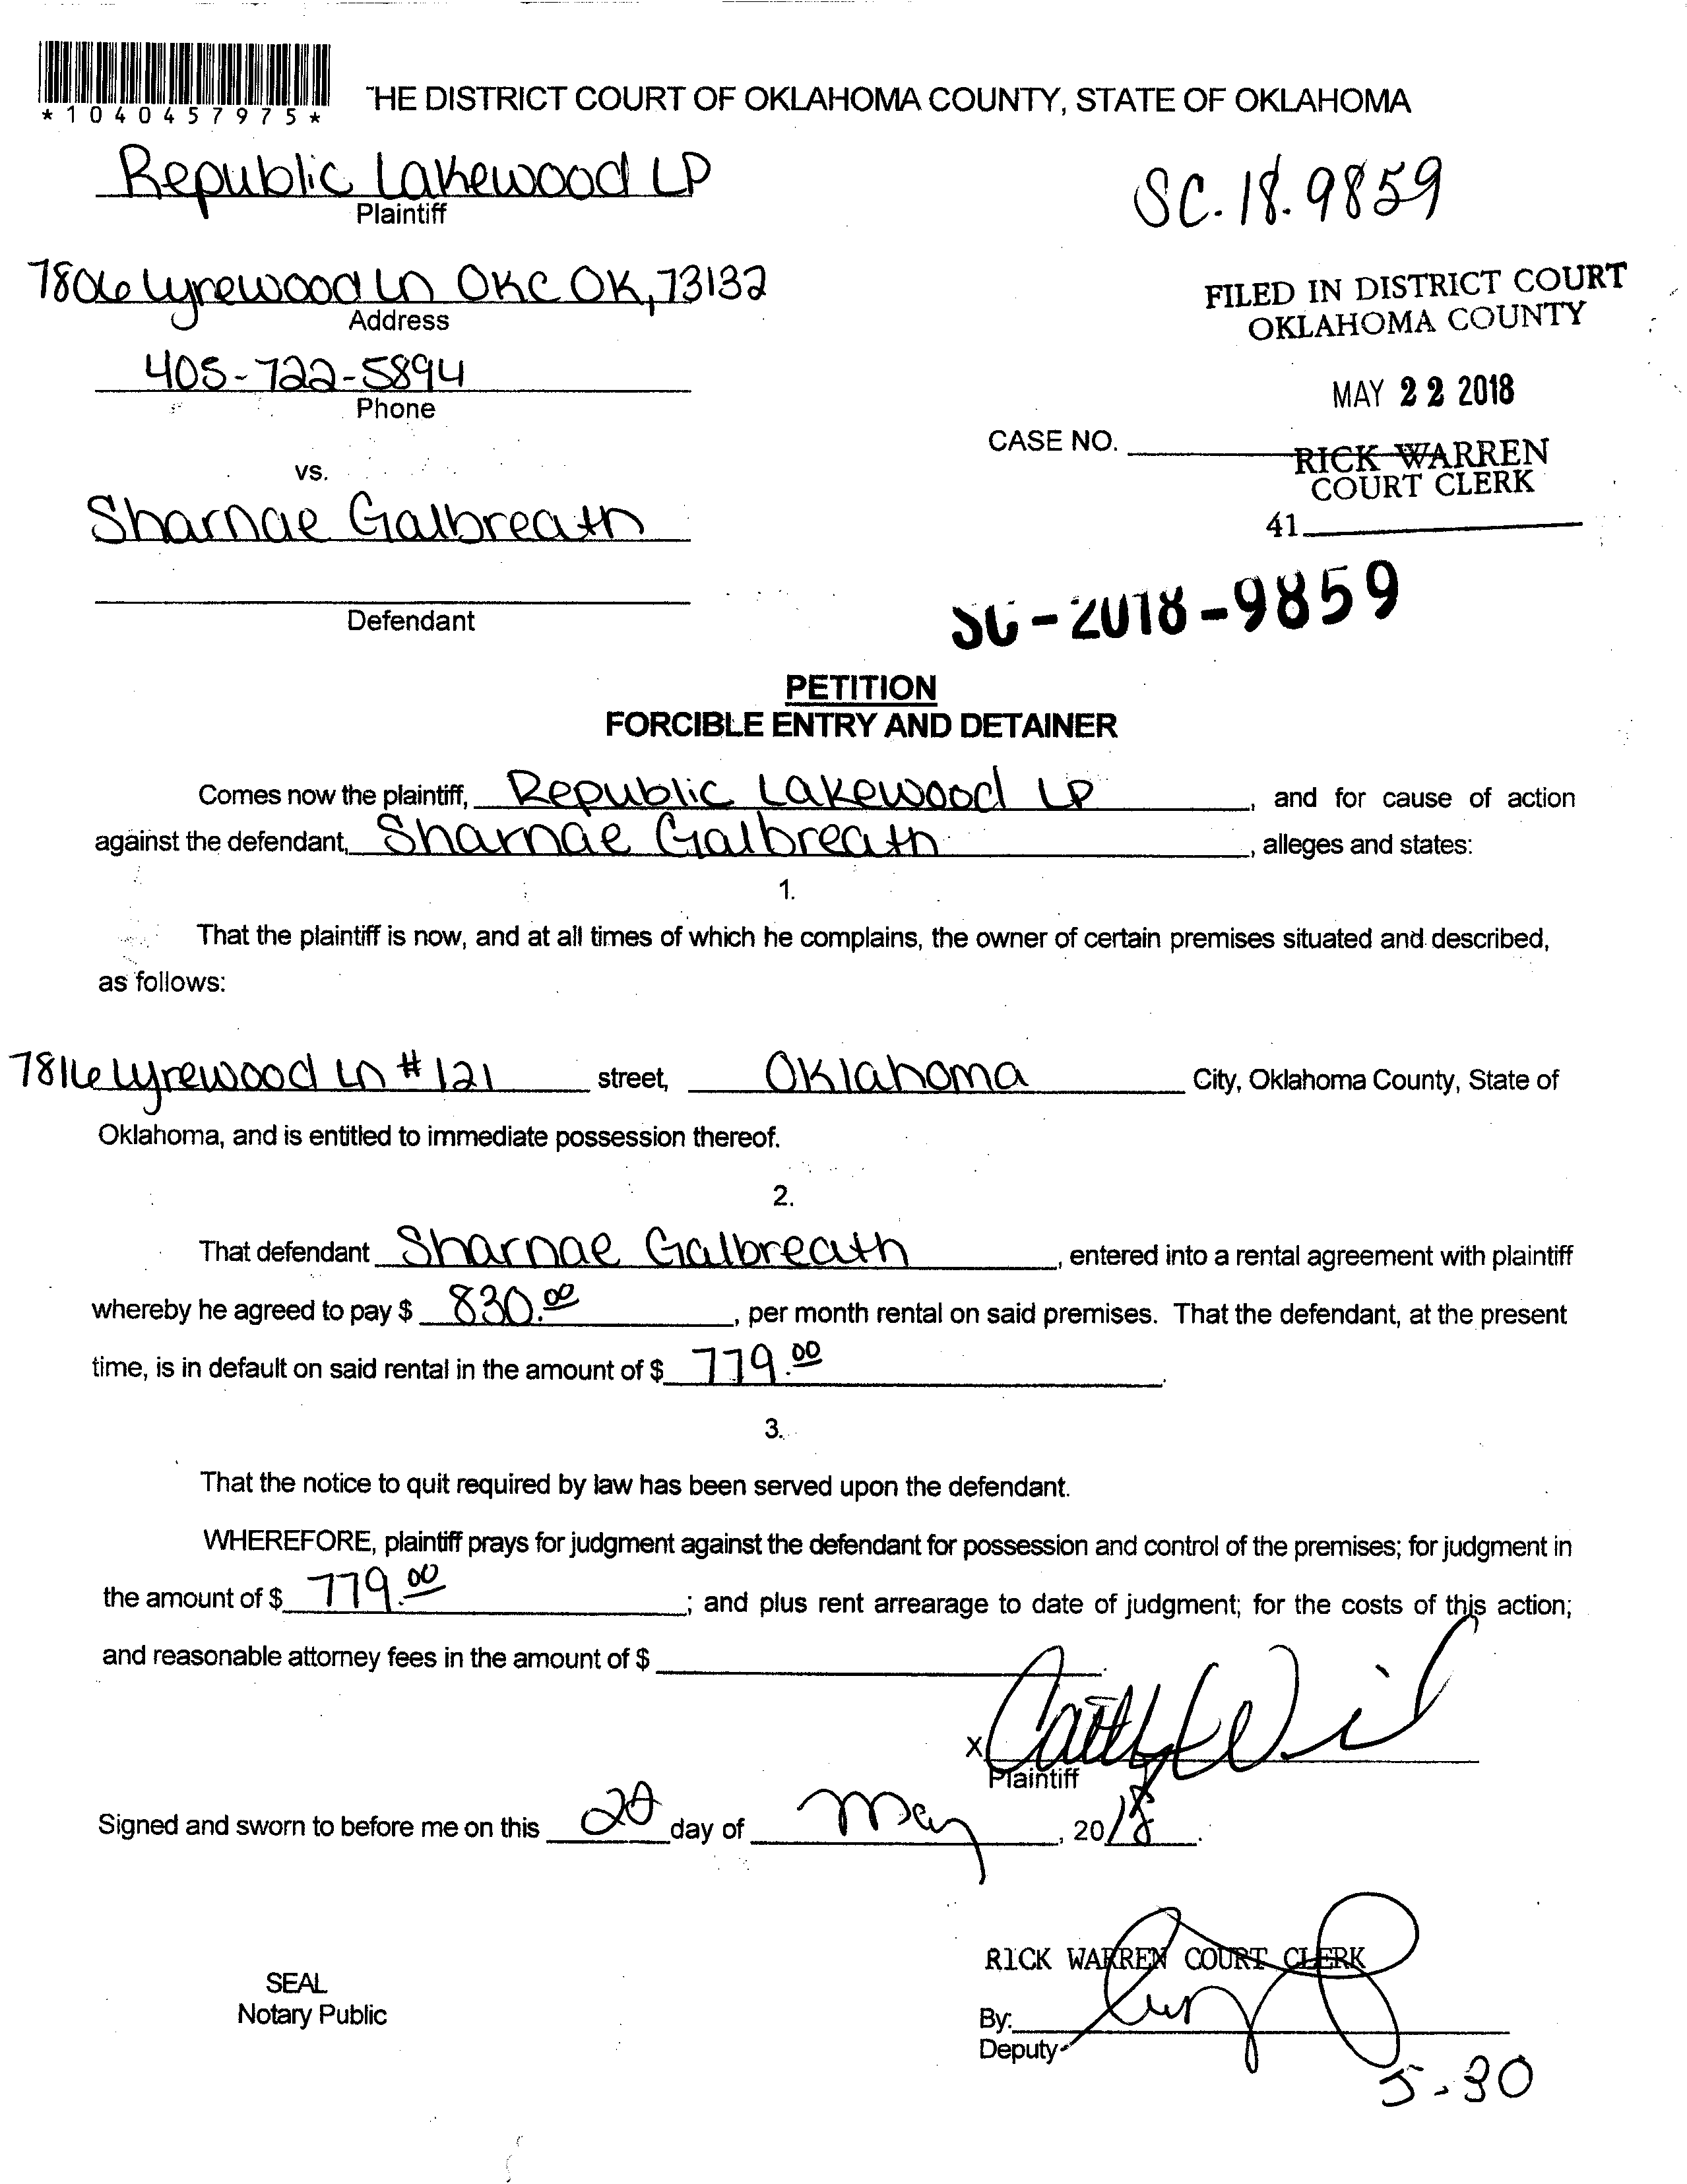 *1040457975*
THE DISTRICT COURT OF OKLAHOMA COUNTY, STATE OF OKLAHOMA
Republic Lakewood LP
Plaintiff
SC.18.9859
7806 Lyrewood Ln OKC OK, 73132
Address
FILED IN DISTRICT COURT
OKLAHOMA COUNTY
405-722-5894
Phone
MAY 22 2018
CASE NO.
RICK WARREN
COURT CLERK
vs.
41
Sharnae Galbreath
Defendant
SC-2018-9859
PETITION
FORCIBLE ENTRY AND DETAINER
Comes now the plaintiff, Republic Lakewood LP, and for cause of action
against the defendant, Sharnae Galbreath, alleges and states:
1.
That the plaintiff is now, and at all times of which he complains, the owner of certain premises situated and described,
as follows:
7816 Lyrewood Ln #121 street, Oklahoma City, Oklahoma County, State of
Oklahoma, and is entitled to immediate possession thereof.
2.
That defendant Sharnae Galbreath, entered into a rental agreement with plaintiff
whereby he agreed to pay $ 830.00, per month rental on said premises. That the defendant, at the present
time, is in default on said rental in the amount of $ 779.00.
3.
That the notice to quit required by law has been served upon the defendant.
WHEREFORE, plaintiff prays for judgment against the defendant for possession and control of the premises; for judgment in
the amount of $ 779.00; and plus rent arrearage to date of judgment; for the costs of this action;
and reasonable attorney fees in the amount of $
X
Plaintiff
Signed and sworn to before me on this day of May, 2018.
RICK WARREN COURT CLERK
SEAL
Notary Public
By:
Deputy
5-30